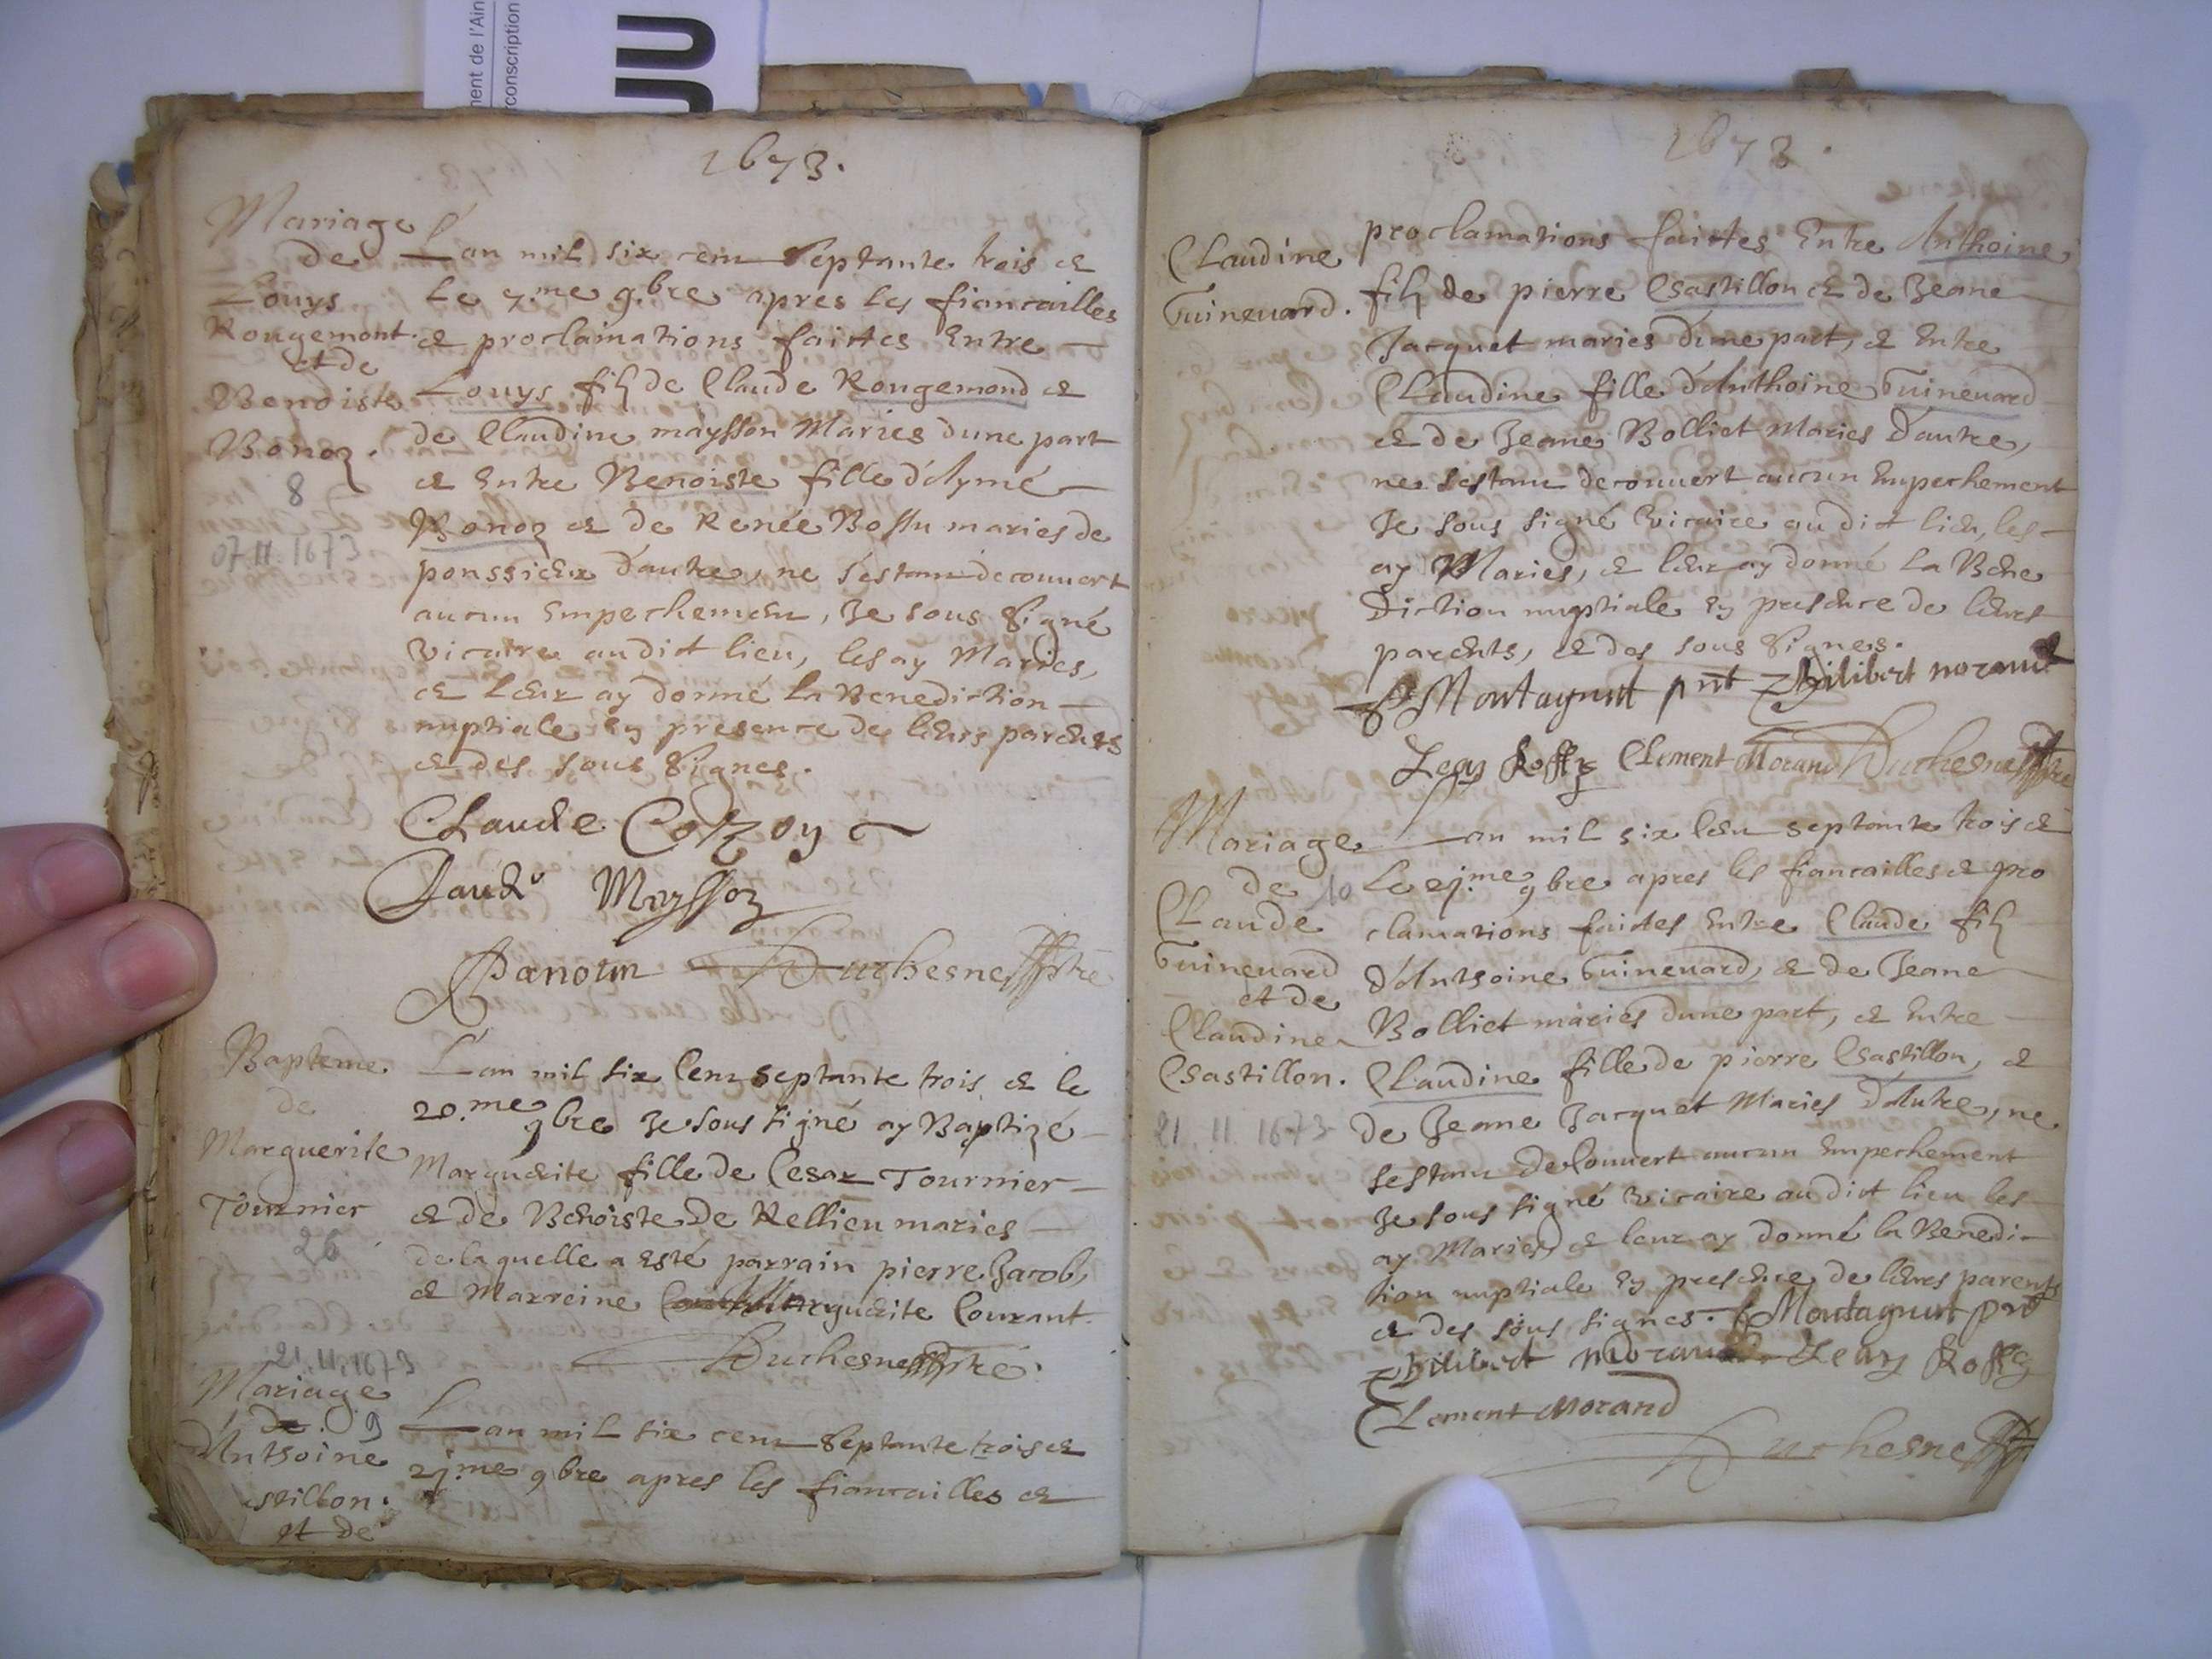 ment de l'Ain
conscription
JU
1673.
Mariage
de
Louys
Rougemont
et de
Benoiste
Bonoz.
8
07.11.1673
L'an mil six cens septante trois et
le 7.me 9.bre apres les fiancailles
et proclamations faictes Entre
Louys filz de Claude Rougemond et
de Claudine maysson Maries dune part
et Entre Benoiste fille d'Aymé
Bonoz et de Renée Bossu maries de
ponssieux d'autre, ne s'estant decouvert
aucun Empechement, Je sous signé
vicaire audict lieu, les ay Maries,
et leur ay donné la Benediction
nuptiale En presence de leurs parents
et des sous signes.
Claude Colzoy
Claude Maysson
Panoum Duchesne ptre
Bapteme
de
Marguerite
Tournier
26
L'an mil six Cens septante trois et le
20.me 9bre Je sous signé ay Baptizé
Marguerite fille de Cesar Tournier
et de Benoiste De Rellieu maries
de laquelle a esté parrain pierre Jacob,
et Marreine Marguerite Courant.
Duchesne ptre.
21.11.1673
Mariage
de. 9
d'Anthoine
stillon.
et de
L'an mil six cens septante trois et
2j.me 9bre apres les fiancailles et
1673.
Claudine
Guinevard.
proclamations faictes Entre Anthoine
filz de pierre Chastillon et de Jeane
Jacquet maries d'une part, et Entre
Claudine fille d'Anthoine Guinevard
et de Jeane Bolliet Maries d'autre,
ne s'estant decouvert aucun Empechement
Je sous signé vicaire audict lieu, les
ay Maries, et leur ay donné la Bene
diction nuptiale En presence de leurs
parents, et des sous signes.
Montagnut pnt philibert morand
Jean Roffy Clement Morand Duchesne ptre
Mariage
de 10
Claude
Guinevard
et de
Claudine
Chastillon.
21.11.1673
L'an mil six Cens septante trois et
Le 2j.me 9bre apres les fiancailles et pro
clamations faictes Entre Claude filz
d'Anthoine Guinevard, et de Jeane
Bolliet maries dune part, et Entre
Claudine fille de pierre Chastillon, et
de Jeane Jacquet Maries d'Autre, ne
s'estant decouvert aucun Empechement
Je sous signé vicaire audict lieu les
ay Maries, et leur ay donné la Benedi-
tion nuptiale En presence de leurs parents
et des sous signes. Montagnut pnt
philibert morand Jean Roffy
Clement Morand
Duchesne ptre